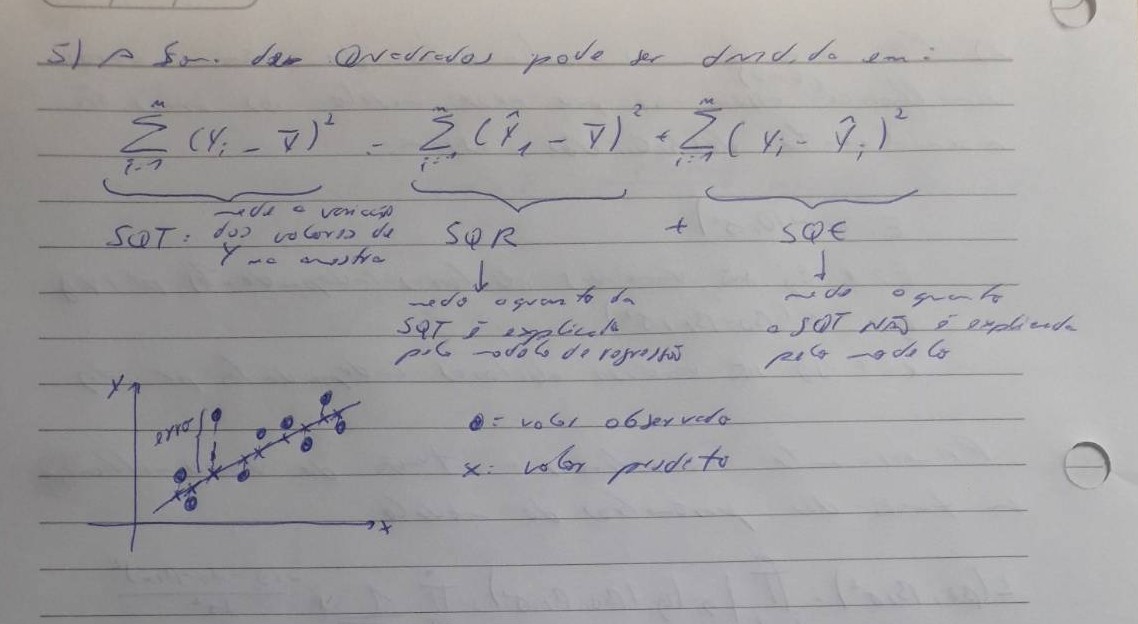 5) A Som. dos Quadrados pode ser dividida em:
n n n
∑ (Yi - Ȳ)² = ∑ (Ŷ1 - Ȳ)² + ∑ (Yi - Ŷi)²
i=1 i=1 i=1
SQT: mede a variação dos valores de Y na amostra
SQR + SQE
mede o quanto da
SQT é explicada
pelo modelo de regressão
mede o quanto
a SQT NÃO é explicada
pelo modelo
Y
erro
x
● = valor observado
x = valor predito